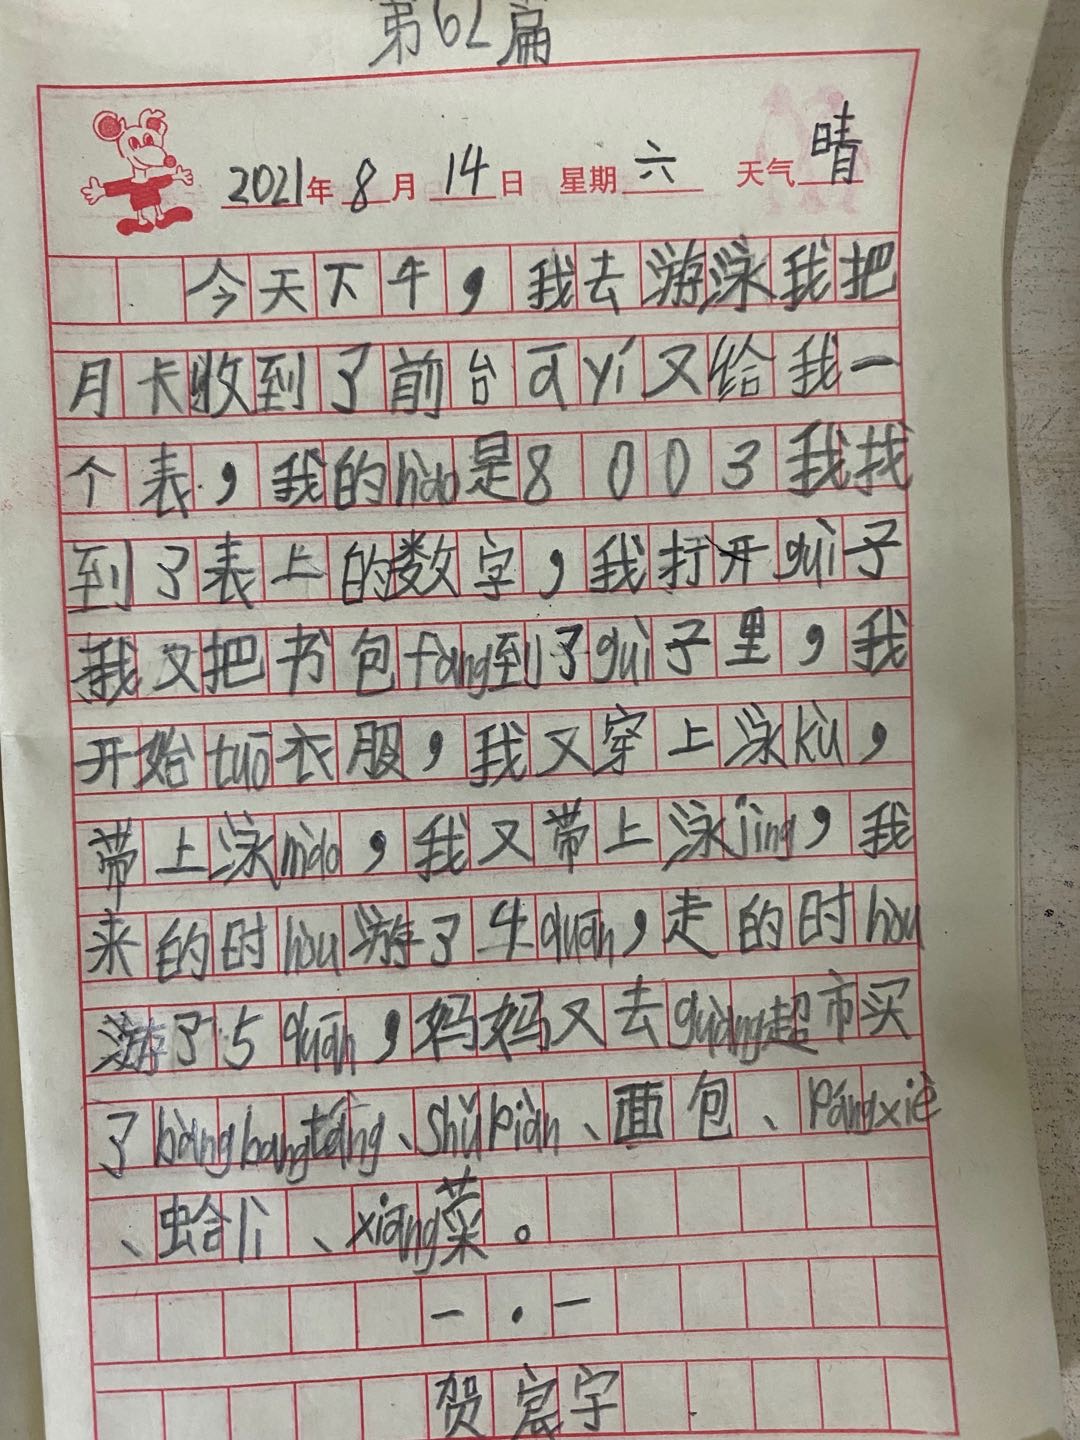 第62篇
2021年8月14日 星期六 天气晴
今天下午，我去游泳我把
月卡收到了前台ā yí又给我一
个表，我的hào是8003我找
到了表上的数字，我打开guì子
我又把书包fàng到了guì子里，我
开始tuō衣服，我又穿上泳kù，
带上泳mào，我又带上泳jìng，我
来的时hòu游了4quān，走的时hòu
游了5quān，妈妈又去guàng超市买
了bàngbangtáng、shǔpiàn、面包、pángxiè
、蛤li、xiāng菜。
一.一
贺宸宇